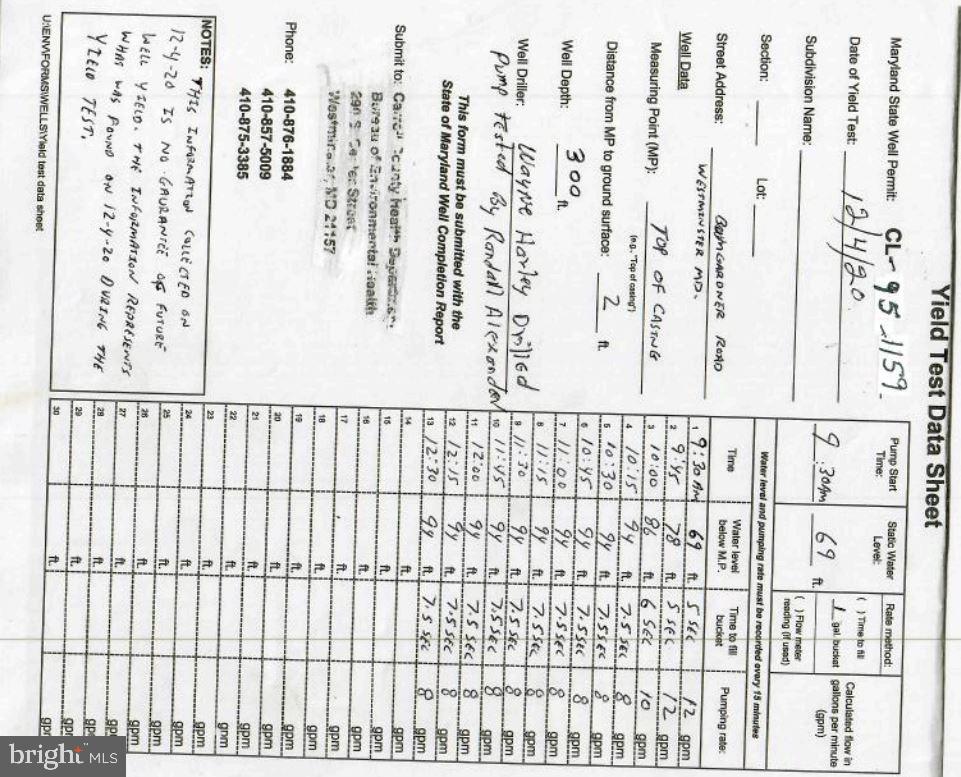 Yield Test Data Sheet
Maryland State Well Permit: CL-95-1159
Date of Yield Test: 12/4/20
Subdivision Name:
Section: Lot:
Street Address: GARDNER ROAD
WESTMINSTER MD.
Well Data
Measuring Point (MP): TOP OF CASING
(e.g., "Top of casing")
Distance from MP to ground surface: 2 ft.
Well Depth: 300 ft.
Well Driller: Wayne Harley Drilled
Pump tested By Randall Alexander
This form must be submitted with the
State of Maryland Well Completion Report
Submit to: Carroll County Health Department
Bureau of Environmental Health
290 S Center Street
Westminster, MD 21157
Phone: 410-876-1884
410-857-5009
410-875-3385
NOTES: THIS INFORMATION COLLECTED ON
12-4-20 IS NO GAURANTEE OF FUTURE
WELL YIELD. THE INFORMATION REPRESENTS
WHAT WAS FOUND ON 12-4-20 DURING THE
YIELD TEST.
U:\ENV\FORMS\WELLS\Yield test data sheet
Pump Start Time: 9:30AM
Static Water Level: 69 ft.
Rate method:
( ) Time to fill
1 gal. bucket
( ) Flow meter
reading (if used)
Calculated flow in
gallons per minute
(gpm)
Water level and pumping rate must be recorded every 15 minutes
Time Water level below M.P. Time to fill bucket Pumping rate:
1 9:30AM 69 ft. 5 SEC 12 gpm
2 9:45 78 ft. 5 SEC 12 gpm
3 10:00 86 ft. 6 SEC 10 gpm
4 10:15 94 ft. 7.5 SEC 8 gpm
5 10:30 94 ft. 7.5 SEC 8 gpm
6 10:45 94 ft. 7.5 SEC 8 gpm
7 11:00 94 ft. 7.5 SEC 8 gpm
8 11:15 94 ft. 7.5 SEC 8 gpm
9 11:30 94 ft. 7.5 SEC 8 gpm
10 11:45 94 ft. 7.5 SEC 8 gpm
11 12:00 94 ft. 7.5 SEC 8 gpm
12 12:15 94 ft. 7.5 SEC 8 gpm
13 12:30 94 ft. 7.5 SEC 8 gpm
14 ft. gpm
15 ft. gpm
16 ft. gpm
17 ft. gpm
18 ft. gpm
19 ft. gpm
20 ft. gpm
21 ft. gpm
22 ft. gpm
23 ft. gpm
24 ft. gpm
25 ft. gpm
26 ft. gpm
27 ft. gpm
28 ft. gpm
29 ft. gpm
30 ft. gpm
bright MLS